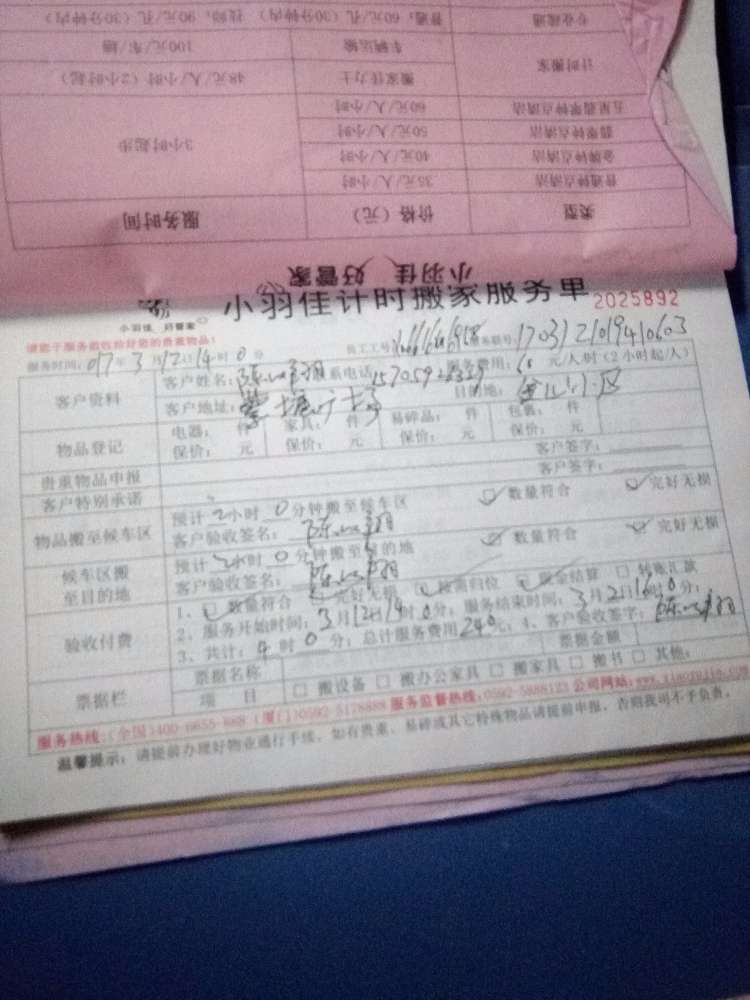 专业疏通 普通：60元/孔（30分钟内） 技师：90元/孔（30分钟内）
计时搬家 车辆运输 100元/车/趟
搬家佳力士 48元/人/小时（2小时起）
五星翡翠钟点清洁 60元/人/小时
翡翠钟点清洁 50元/人/小时
金牌钟点清洁 40元/人/小时
普通钟点清洁 35元/人/小时
3小时起步
类型 价格（元） 服务时间
小羽佳 好管家
小羽佳计时搬家服务单 2025892
小羽佳 好管家
请您于服务前收拾好您的贵重物品！
服务时间：017年3月12日14时0分 员工工号 服务联号：1703121019410603
客户资料 客户姓名： 联系电话 服务费用：60元/人/时（2小时起/人）
客户地址： 广场 目的地：
物品登记 电器： 件 家具： 件 易碎品： 件 包裹： 件
保价： 元 保价： 元 保价： 元 保价： 元
贵重物品申报 客户签字：
客户特别承诺 客户签字：
物品搬至候车区 预计2小时0分钟搬至候车区 数量符合 完好无损
客户验收签名：
候车区搬至目的地 预计2小时0分钟搬至目的地 数量符合 完好无损
客户验收签名：
验收付费 1、数量符合 完好无损 按需归位 现金结算 转账汇款
2、服务开始时间：3月12日14时0分；服务结束时间：3月2日16时0分；
3、共计：4时0分；总计服务费用240元；4、客户验收签字：
票据栏 票据名称 票据金额
项目 搬设备 搬办公家具 搬家具 搬书 其他：
服务热线：(全国)400-6655-888 (厦门)0592-5178888 服务监督热线：0592-5888123 公司网站：www.xiaoyujia.com
温馨提示：请提前办理好物业通行手续，如有贵重、易碎或其它特殊物品请提前申报，否则我司不予负责。